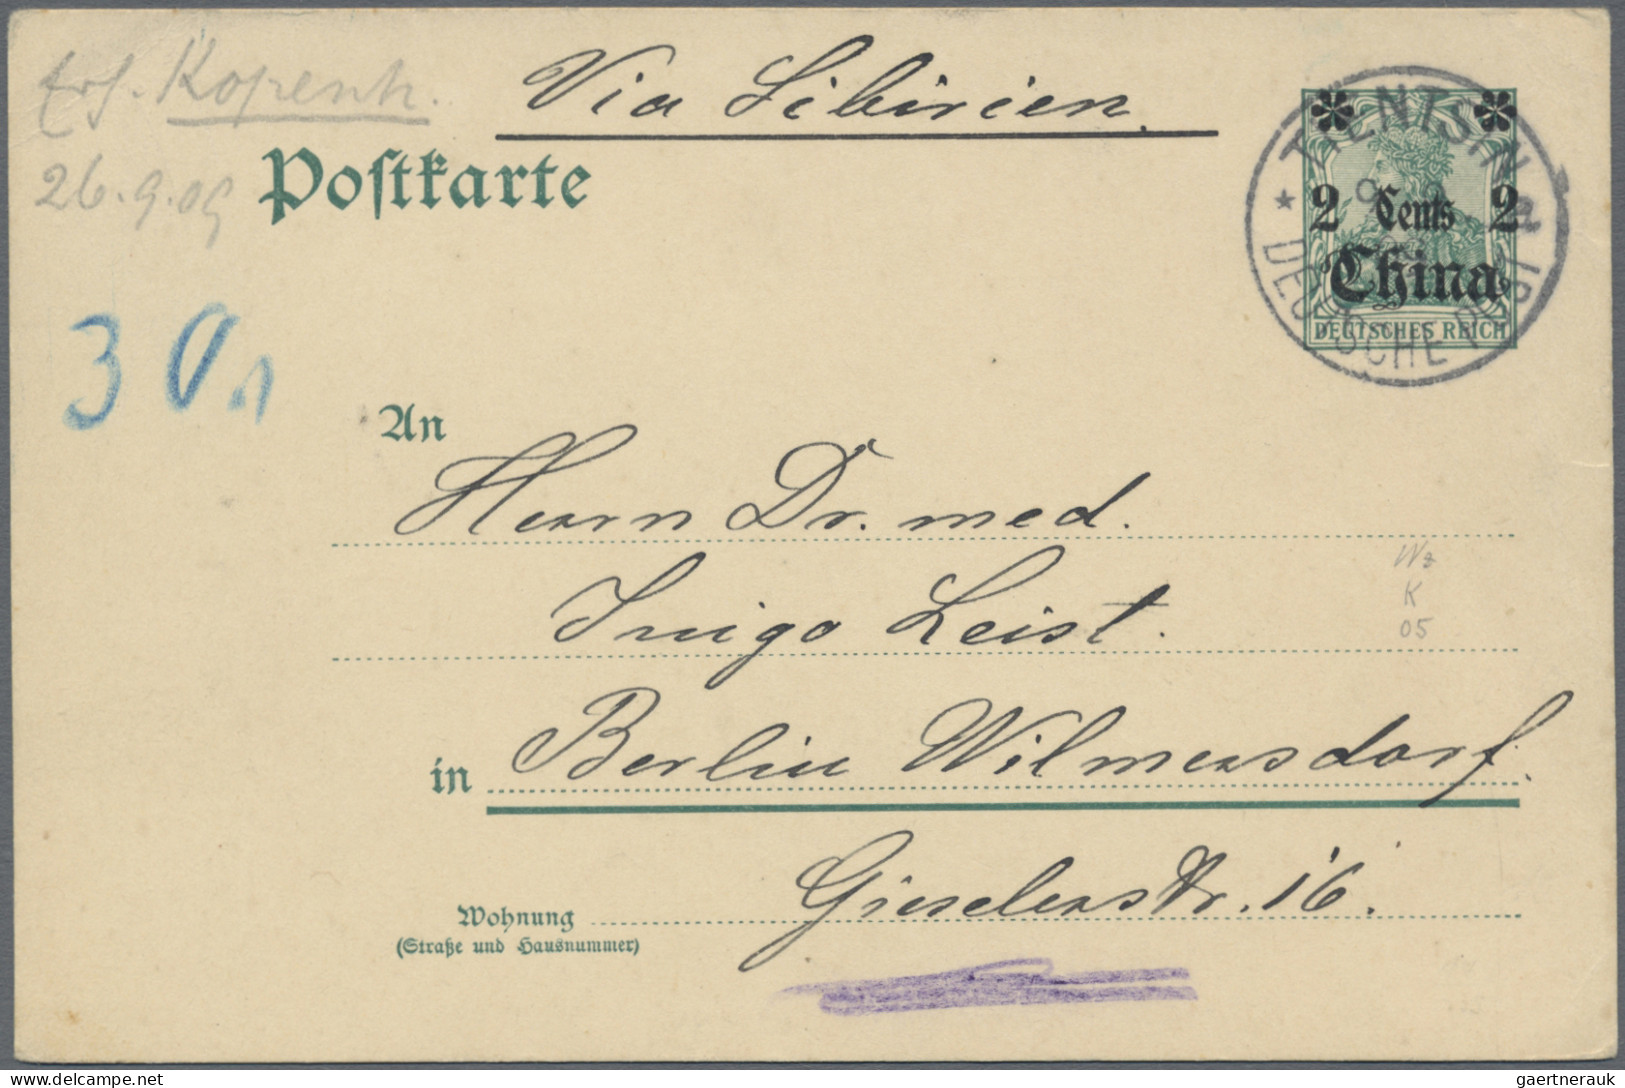 Kopenh.
26.9.09
Via Sibirien.
Postkarte
TIENTSIN a
* DEUTSCHE POST
2 Cents 2
China
DEUTSCHES REICH
30
An
Herrn Dr. med.
Inigo Leist.
in Berlin Wilmersdorf.
Gieselerstr. 16.
Wohnung
(Straße und Hausnummer)
Wz
K
05
gaertnerauk